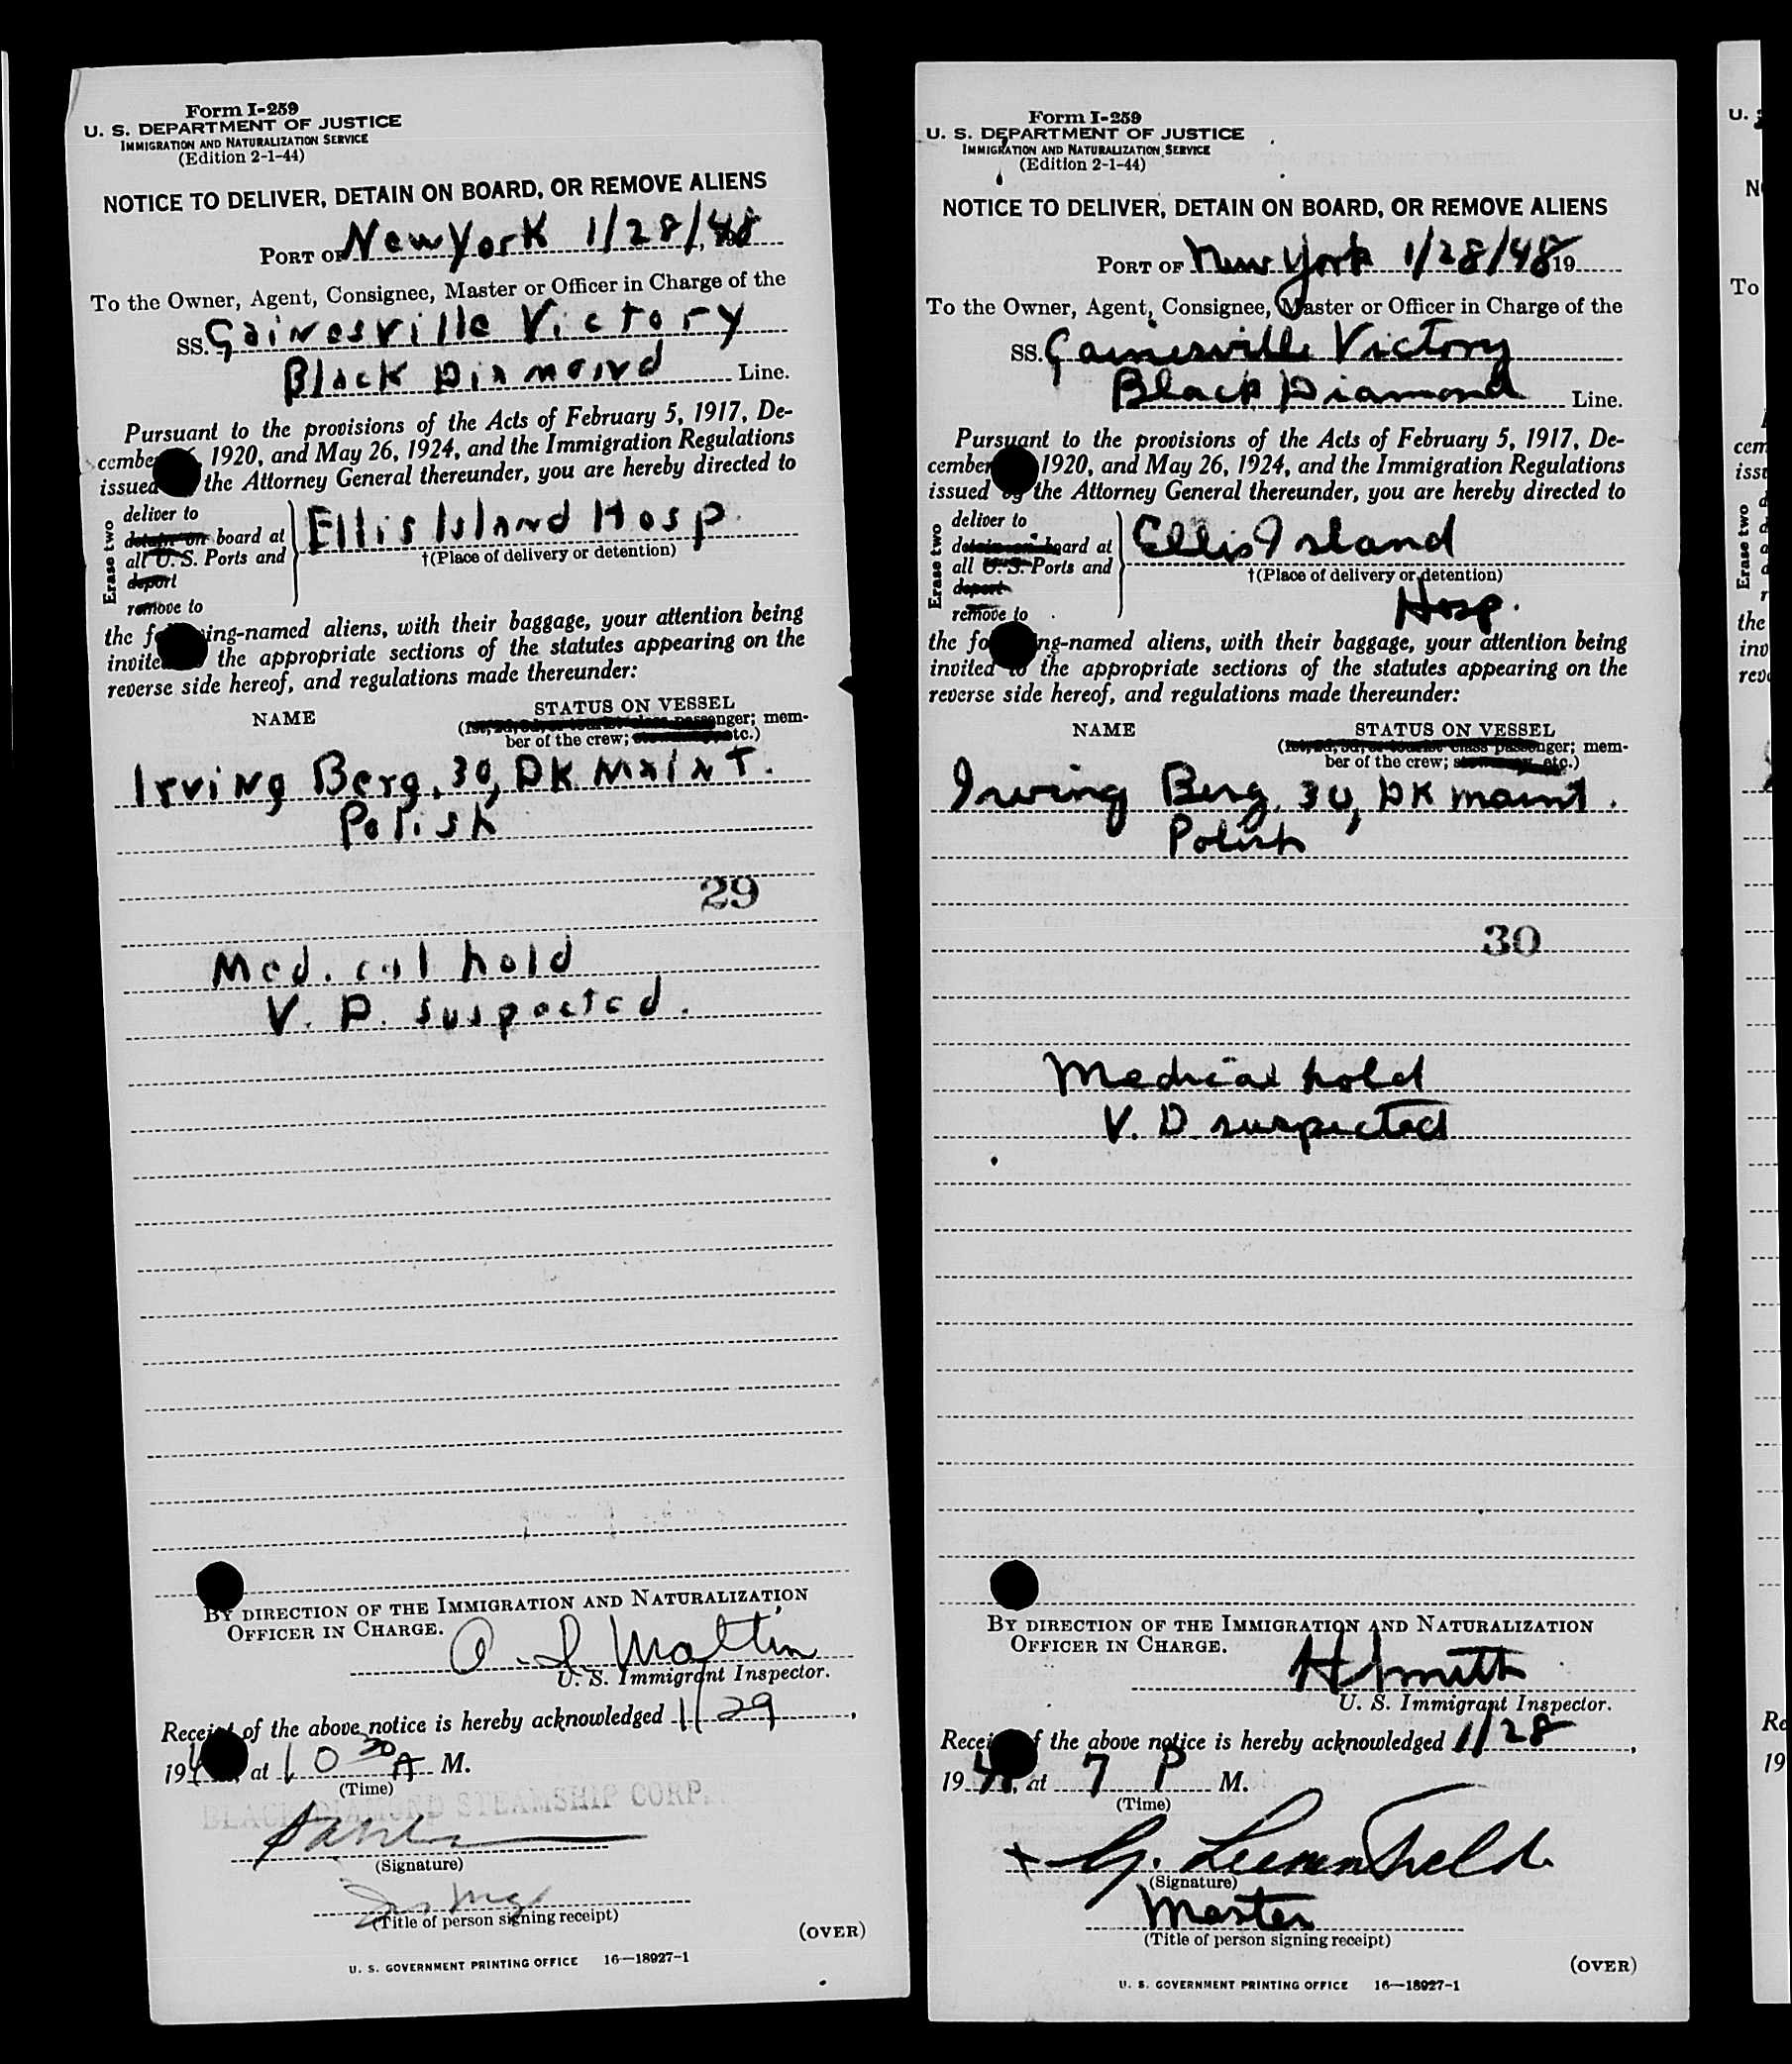 Form I-259
U. S. DEPARTMENT OF JUSTICE
IMMIGRATION AND NATURALIZATION SERVICE
(Edition 2-1-44)
NOTICE TO DELIVER, DETAIN ON BOARD, OR REMOVE ALIENS
PORT OF New York 1/28/48
To the Owner, Agent, Consignee, Master or Officer in Charge of the
SS. Gainesville Victory
Black Diamond Line.
Pursuant to the provisions of the Acts of February 5, 1917, De-
cember 1920, and May 26, 1924, and the Immigration Regulations
issued the Attorney General thereunder, you are hereby directed to
Erase two
deliver to
detain on board at
all U. S. Ports and
deport
remove to
Ellis Island Hosp.
†(Place of delivery or detention)
the following-named aliens, with their baggage, your attention being
invited the appropriate sections of the statutes appearing on the
reverse side hereof, and regulations made thereunder:
NAME STATUS ON VESSEL
(1st, 2d, 3d, or tourist class passenger; mem-
ber of the crew; etc.)
Irving Berg, 30, DK Maint.
Polish
29
Medical hold
V. D. suspected.
BY DIRECTION OF THE IMMIGRATION AND NATURALIZATION
OFFICER IN CHARGE.
U. S. Immigrant Inspector.
Receipt of the above notice is hereby acknowledged 1/29,
194 at 10 30 A M.
(Time)
BLACK DIAMOND STEAMSHIP CORP.
(Signature)
(Title of person signing receipt)
(OVER)
U. S. GOVERNMENT PRINTING OFFICE 16—18927-1
Form I-259
U. S. DEPARTMENT OF JUSTICE
IMMIGRATION AND NATURALIZATION SERVICE
(Edition 2-1-44)
NOTICE TO DELIVER, DETAIN ON BOARD, OR REMOVE ALIENS
PORT OF New York 1/28/48 19
To the Owner, Agent, Consignee, Master or Officer in Charge of the
SS. Gainesville Victory
Black Diamond Line.
Pursuant to the provisions of the Acts of February 5, 1917, De-
cember 1920, and May 26, 1924, and the Immigration Regulations
issued by the Attorney General thereunder, you are hereby directed to
Erase two
deliver to
detain on board at
all U. S. Ports and
deport
remove to
Ellis Island
†(Place of delivery or detention)
Hosp.
the following-named aliens, with their baggage, your attention being
invited to the appropriate sections of the statutes appearing on the
reverse side hereof, and regulations made thereunder:
NAME STATUS ON VESSEL
(1st, 2d, 3d, or tourist class passenger; mem-
ber of the crew; etc.)
Irving Berg, 30, DK maint.
Polish
30
Medical hold
V. D. suspected
BY DIRECTION OF THE IMMIGRATION AND NATURALIZATION
OFFICER IN CHARGE.
H Smith
U. S. Immigrant Inspector.
Receipt of the above notice is hereby acknowledged 1/28,
1948, at 7 P M.
(Time)
(Signature)
Master
(Title of person signing receipt)
(OVER)
U. S. GOVERNMENT PRINTING OFFICE 16—18927-1